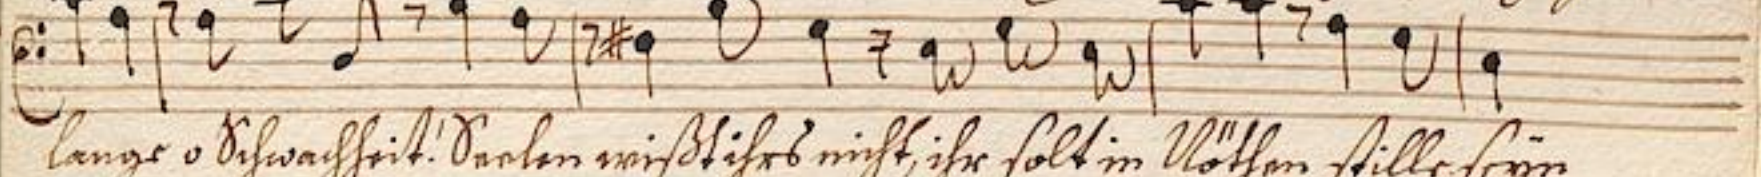 lange o Schwachheit! Seelen wißt ihrs nicht, ihr solt in Nöthen stille seÿn